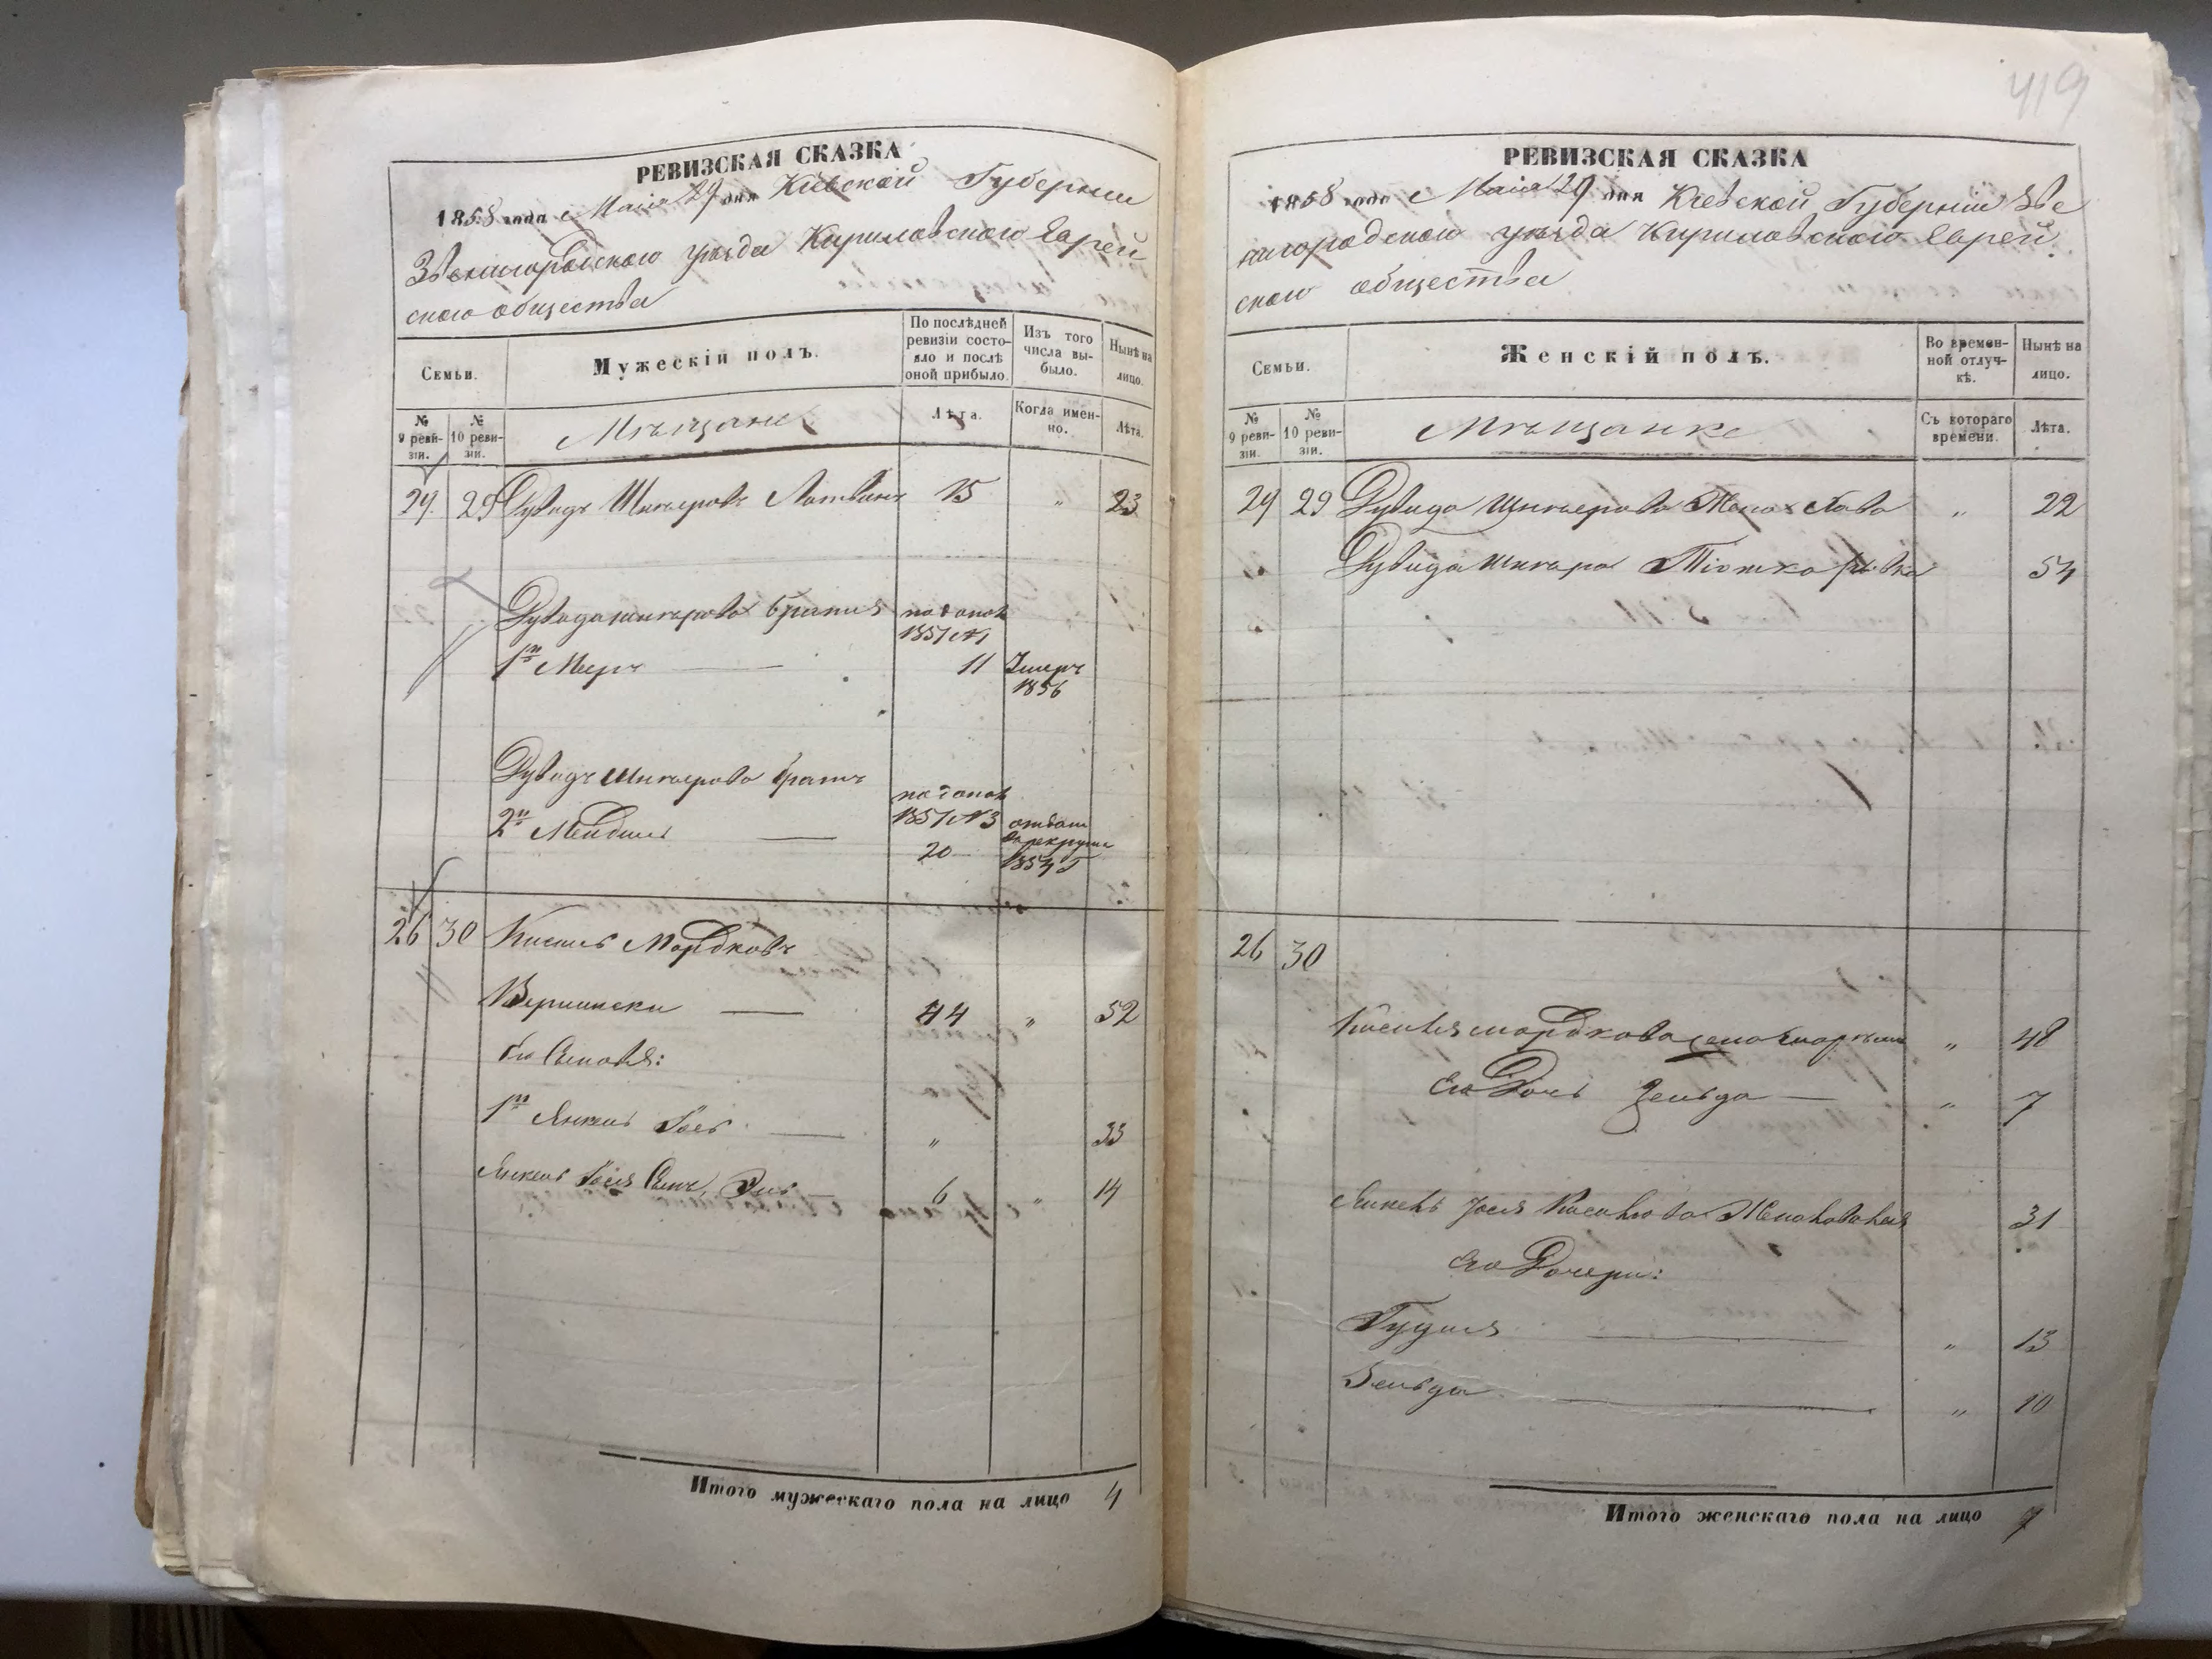 419
РЕВИЗСКАЯ СКАЗКА
1858 года Маія 29 дня Кіевской Губерніи
Звенигородскаго уезда Кириловскаго Еврей
скаго общества
Семьи.
Мужескій полъ.
По послѣдней
ревизіи состо-
яло и послѣ
оной прибыло.
Изъ того
числа вы-
было.
Нынѣ на
лицо.
№
9 реви-
зіи.
№
10 реви-
зіи.
Мѣщане
Лѣта.
Когда имен-
но.
Лѣта.
29 29 Дувидъ Шнеровъ 15 " 23
Дувида Шнерова братья
1й Мееръ 11 Умеръ
1856
Дувидъ Шнерова братъ
2й Мендель 20
1854
26 30 Кисель Мордковъ
44 " 52
Его Сыновья:
1й Янкель Іось " 33
Янкель Іося Сынъ 6 " 14
Итого мужескаго пола на лицо 4
РЕВИЗСКАЯ СКАЗКА
1858 года Маія 29 дня Кіевской Губерніи Зве
нигородскаго уезда Кириловскаго Еврей
скаго общества
Семьи.
Женскій полъ.
Во времен-
ной отлуч-
кѣ.
Нынѣ на
лицо.
№
9 реви-
зіи.
№
10 реви-
зіи.
Мѣщанке
Съ котораго
времени.
Лѣта.
29 29 Дувида Шнерова Жена Хава " 22
Дувида Шнера Тіотка Ривка 54
26 30
Киселя Мордкова жена " 48
Его Дочь Зельда " 7
Янкель Іося Киселева Жена 31
Его Дочери:
Гудля " 13
Зельда " 10
Итого женскаго пола на лицо 7